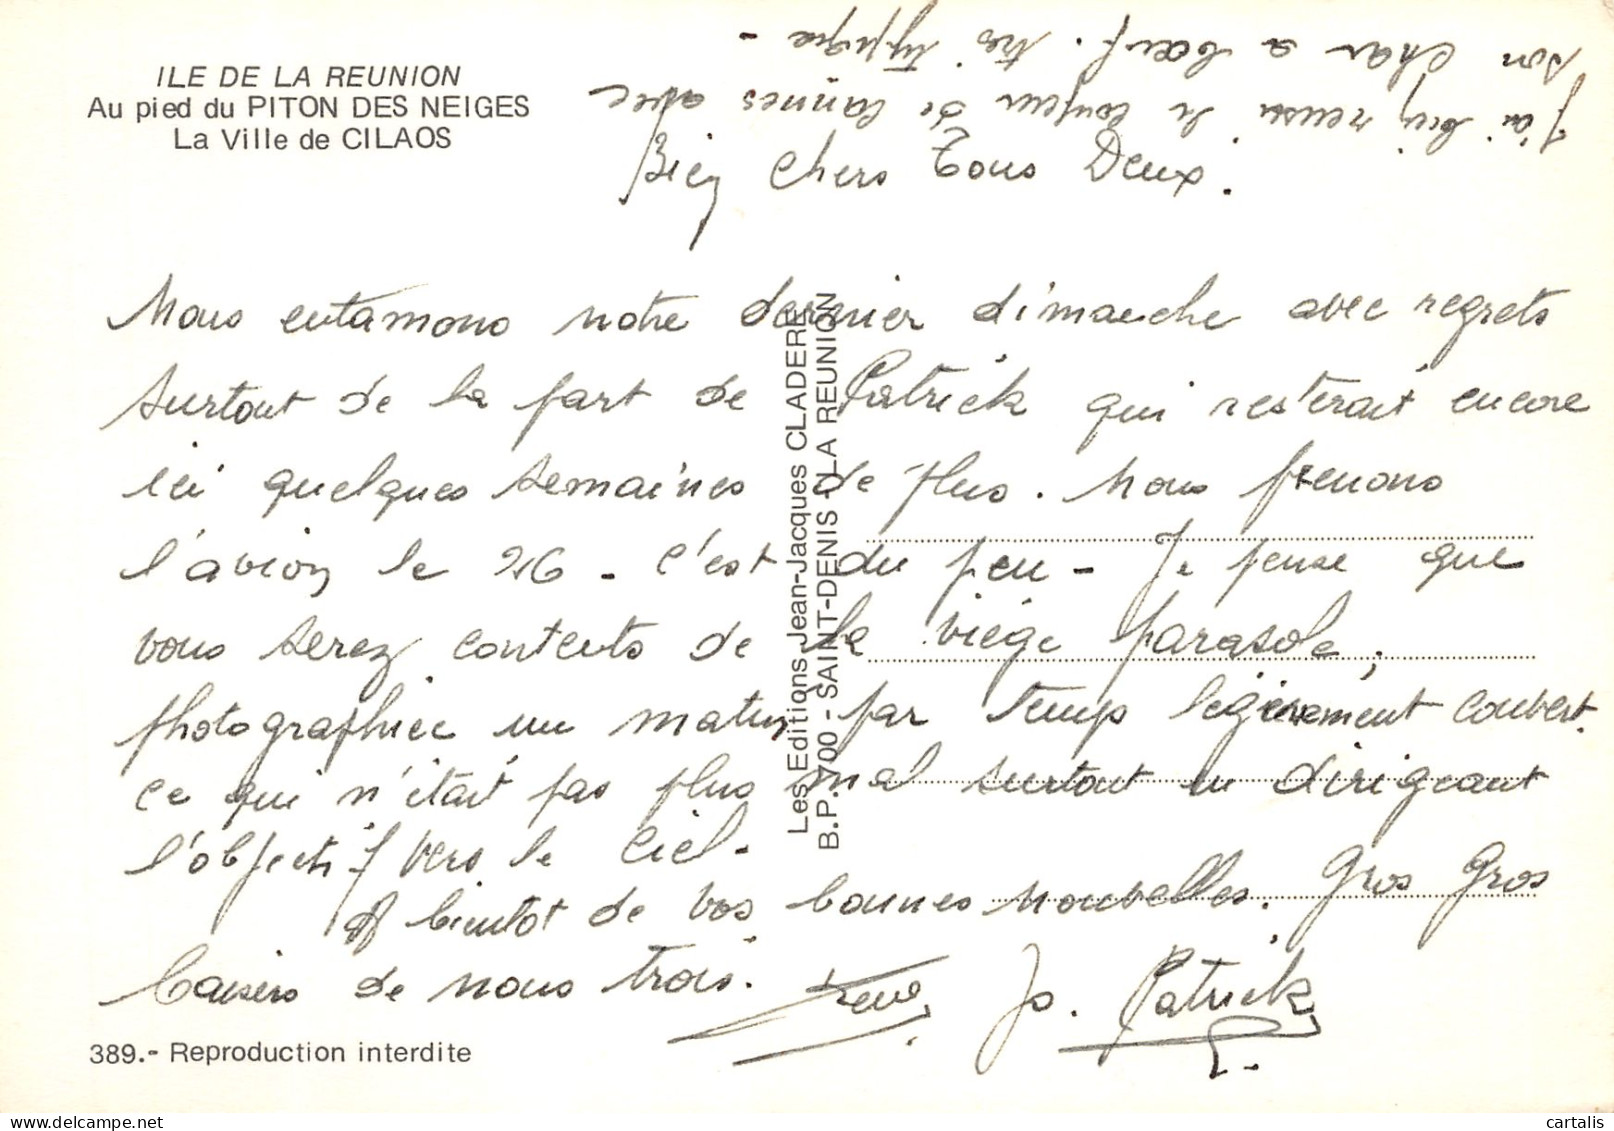 ILE DE LA REUNION
Au pied du PITON DES NEIGES
La Ville de CILAOS
Bien Chers Tous Deux.
Nous entamons notre dernier dimanche avec regrets
surtout de la part de Patrick qui resterait encore
ici quelques semaines de plus. Nous prenons
l'avion le 26 - c'est du peu - Je pense que
vous serez contents de la viége parasole,
photographiée un matin par temps légèrement couvert.
ce qui n'était pas plus mal surtout en dirigeant
l'objectif vers le ciel -
A bientôt de vos bonnes nouvelles. Gros Gros
baisers de nous trois.
Jo. Patrick
J'ai bien reussi le coupeur de cannes avec
son char a boeuf. tres typique -
Les Editions Jean-Jacques CLADERE
B.P. 700 - SAINT-DENIS - LA REUNION
389.- Reproduction interdite
cartalis
delcampe.net